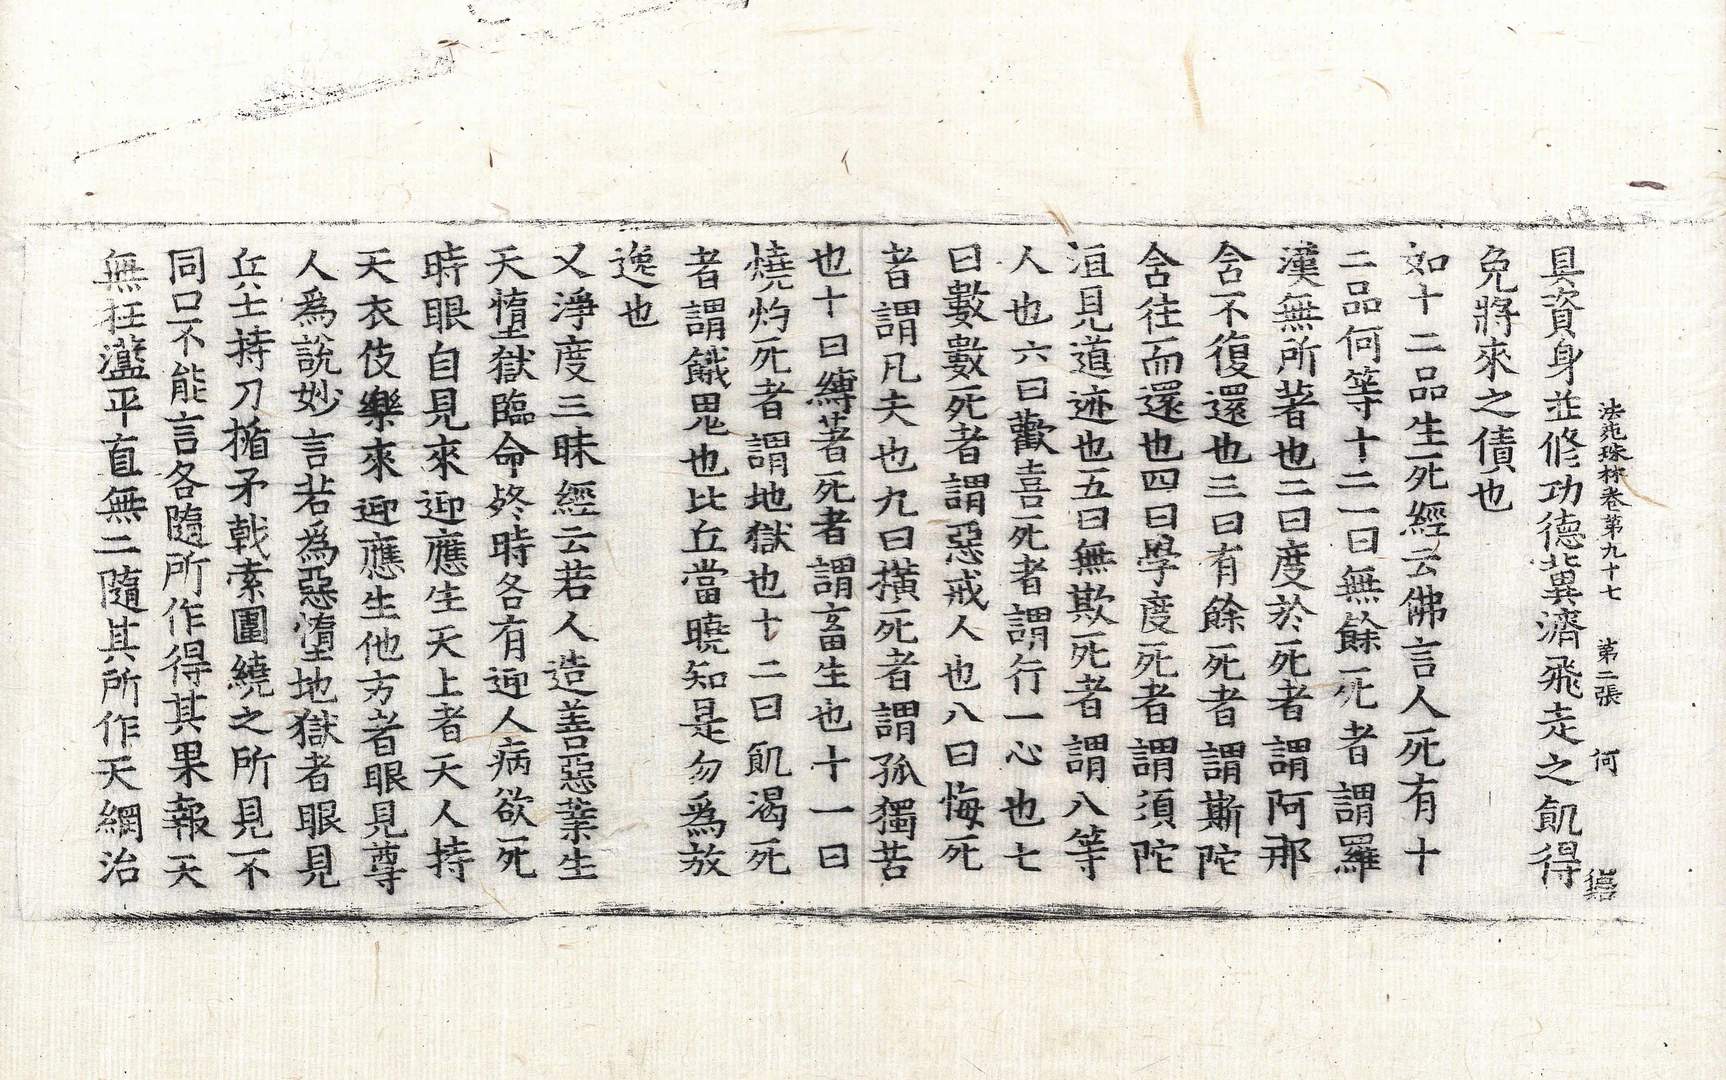 法苑珠林卷第九十七 第二張 何
具資身並修功德冀濟飛走之飢得
免將來之債也
如十二品生死經云佛言人死有十
二品何等十二一曰無餘死者謂羅
漢無所著也二曰度於死者謂阿那
含不復還也三曰有餘死者謂斯陀
含往而還也四曰學度死者謂須陀
洹見道迹也五曰無欺死者謂八等
人也六曰歡喜死者謂行一心也七
曰數數死者謂惡戒人也八曰悔死
者謂凡夫也九曰橫死者謂孤獨苦
也十曰縛著死者謂畜生也十一曰
燒灼死者謂地獄也十二曰飢渴死
者謂餓鬼也比丘當曉知是勿為放
逸也
又淨度三昧經云若人造善惡業生
天墮獄臨命終時各有迎人病欲死
時眼自見來迎應生天上者天人持
天衣伎樂來迎應生他方者眼見尊
人為說妙言若為惡墮地獄者眼見
兵士持刀楯矛戟索圍繞之所見不
同口不能言各隨所作得其果報天
無枉濫平直無二隨其所作天網治